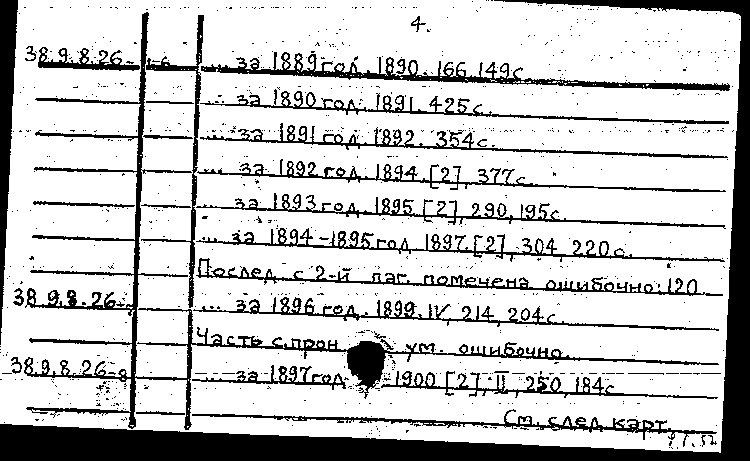 4.
38.9.8.26-1-6 ... за 1889 год. 1890. 166, 149 с.
... за 1890 год. 1891. 425 с.
... за 1891 год. 1892. 354 с.
... за 1892 год. 1894. [2], 377 с.
... за 1893 год. 1895. [2], 290, 195 с.
... за 1894-1895 год. 1897. [2], 304, 220 с.
Послед. с 2-й паг. помечена ошибочно: 120.
38.9.8.26-7 ... за 1896 год. 1899. IV, 214, 204 с.
Часть с. прон ум. ошибочно.
38.9.8.26-8 ... за 1897 год 1900 [2], II, 250, 184 с
См. след. карт.